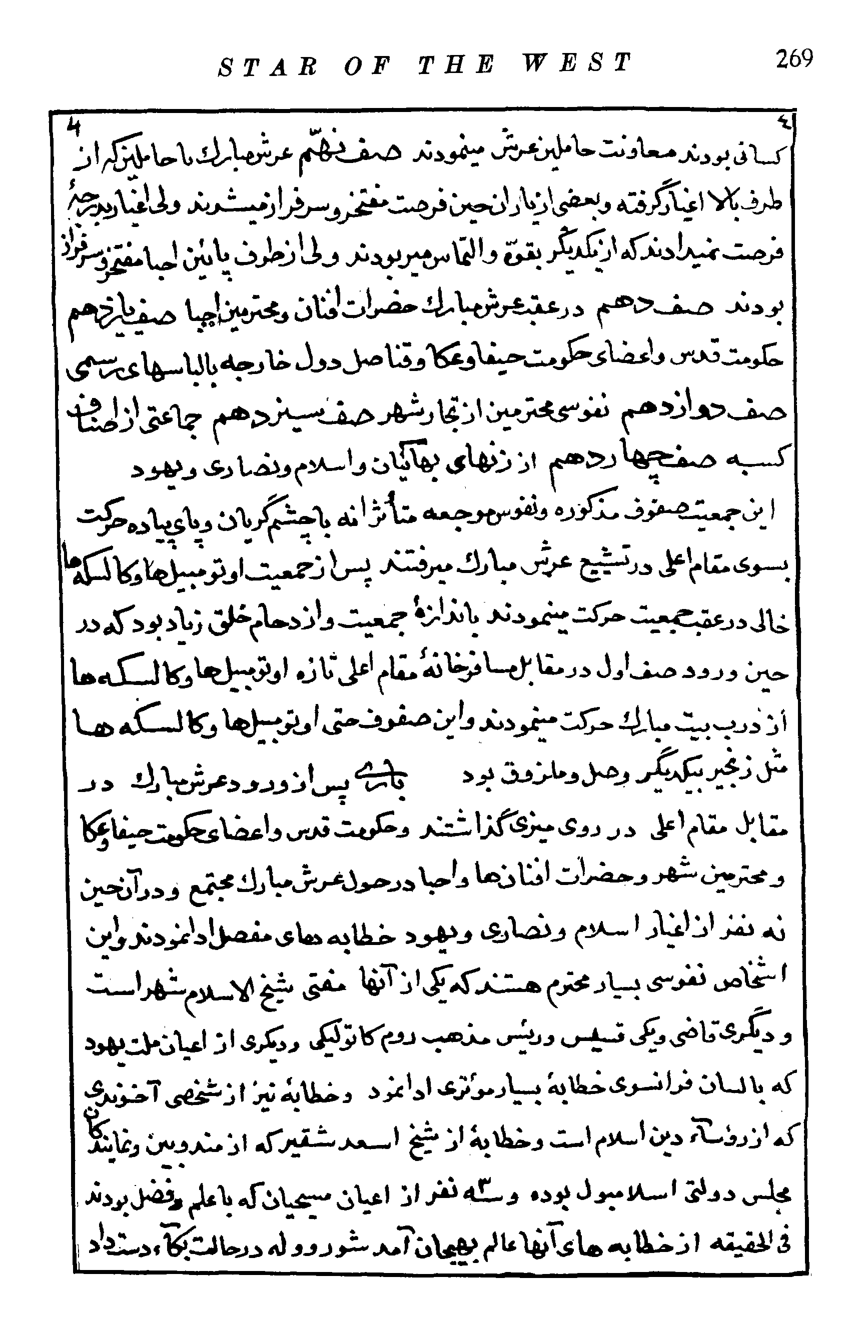 STAR OF THE WEST
269
4
٤
کسانی بودند معاونت حاملین عرش مینمودند صف نهّم عرش مبارک با حاملین که از
طرف بالا اغیار گرفته و بعضی از یاران حین فرصت مفتخر و سرفراز میشدند ولی اغیار بدرجهٔ
فرصت نمیدادند که از یکدیگر بقوّه و التماس میربودند ولی از طرف پائین احبا مفتخر و سرفراز
بودند صف دهم در عقب عرش مبارک حضرات افنان و محترمین احبا صف یازدهم
حکومت قدس و اعضای حکومت حیفا و عکا و قناصل دول خارجه بالباسهای رسمی
صف دوازدهم نفوسی محترمین از تجار شهر صف سیزدهم جماعتی از اصناف
کسبه صف چهاردهم از زنهای بهائیان و اسلام و نصاری و یهود
این جمعیت صفوف مذکوره و نفوس موجعه متأثرانه با چشم گریان و پای پیاده حرکت
بسوی مقام اعلی در تشییع عرش مبارک میرفتند پس از جمعیت اوتومبیل‌ها و کالسکه‌ها
خالی در عقب جمعیت حرکت مینمودند باندازهٔ جمعیت و ازدحام خلق زیاد بود که در
حین ورود صف اول در مقابل مسافرخانهٔ مقام اعلی تازه اوتومبیل‌ها و کالسکه‌ها
از درب بیت مبارک حرکت مینمودند و این صفوف حتی اوتومبیل‌ها و کالسکه‌ها
مثل زنجیر بیکدیگر وصل و ملزوق بود باری پس از ورود عرش مبارک در
مقابل مقام اعلی در روی میزی گذاشتند و حکومت قدس و اعضای حکومت حیفا و عکا
و محترمین شهر و حضرات افنان‌ها و احبا در حول عرش مبارک مجتمع و در آن حین
نه نفر از اغیار اسلام و نصاری و یهود خطابه‌های مفصل ادا نمودند و این
اشخاص نفوسی بسیار محترم هستند که یکی از آنها مفتی شیخ الاسلام شهر است
و دیگری قاضی و یکی قسیس و رئیس مذهب روم کاتولیکی و دیکری از اعیان ملت یهود
که بالسان فرانسوی خطابهٔ بسیار موثری ادا نمود و خطابهٔ نیز از شخصی آخوندی
که از رؤسآء دین اسلام است و خطابهٔ از شیخ اسعد شقیر که از مندوبین و نمایندگان
مجلس دولتی اسلامبول بوده و سه نفر از اعیان مسیحیان که با علم و فضل بودند
فی الحقیقه از خطابه های آنها عالم بهیجان آمد شور و وله در حالت بکآء دست داد